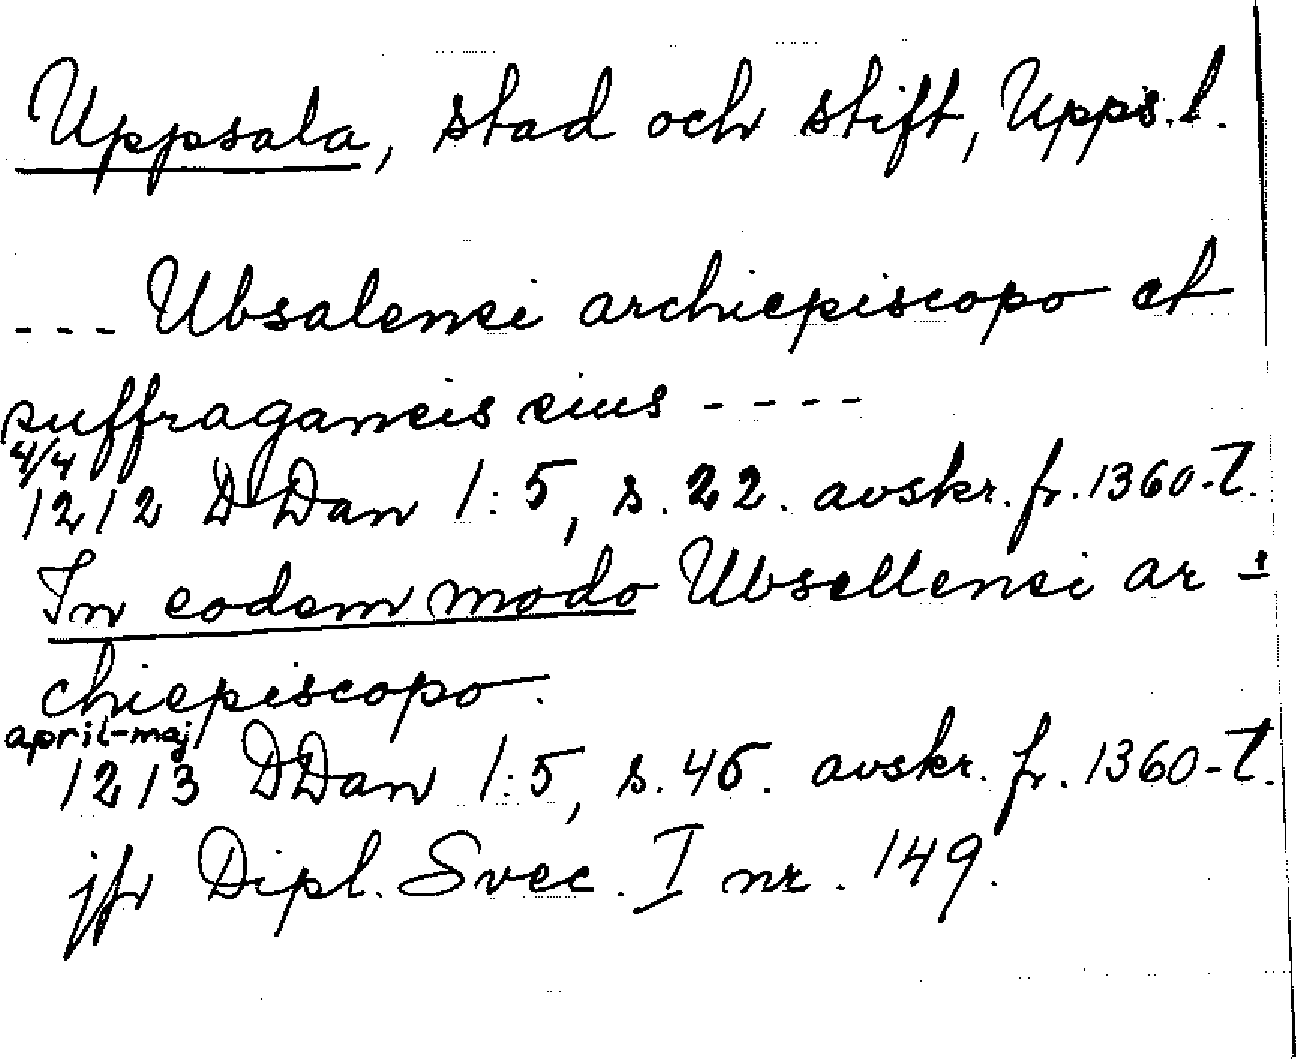 Uppsala, stad och stift, Upps. l.
--- Ubsalensi archiepiscopo et
suffraganeis eius ----
4/4
1212 DDan 1:5, s. 22. avskr. fr. 1360-t.
In eodem modo Ubsellensi ar-
chiepiscopo.
april-maj
1213 DDan 1:5, s. 45. avskr. fr. 1360-t.
jfr Dipl. Svec. I nr. 149.